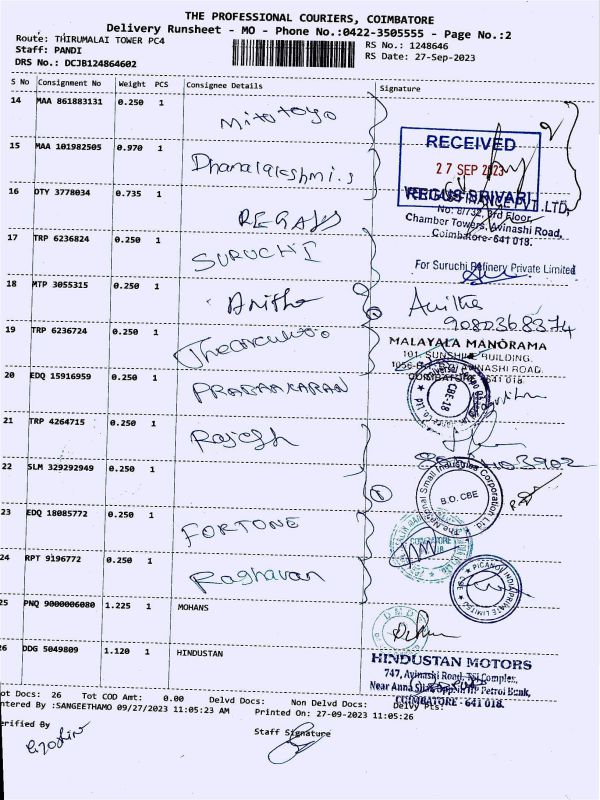 THE PROFESSIONAL COURIERS, COIMBATORE
Delivery Runsheet - MO - Phone No.:0422-3505555 - Page No.:2
Route: THIRUMALAI TOWER PC4
RS No.: 1248646
Staff: PANDI
RS Date: 27-Sep-2023
DRS No.: DCJB124864602
S No Consignment No Weight PCS Consignee Details Signature
14 MAA 861883131 0.250 1 Mitotoyo
15 MAA 101982505 0.970 1 Dhanalakshmi.s
RECEIVED
27 SEP 2023
16 OTY 3778034 0.735 1 REGAUS
REGUS SRIVARI
No: 8/732, 3rd Floor,
Chamber Towers, Avinashi Road,
Coimbatore- 641 018.
17 TRP 6236824 0.250 1 SURUCHI
For Suruchi Refinery Private Limited
18 MTP 3055315 0.250 1 Anitha
Anitha
9080368374
19 TRP 6236724 0.250 1
MALAYALA MANORAMA
101, SUNSHINE BUILDING,
AVINASHI ROAD,
COIMBATORE - 641 018.
20 EDQ 15916959 0.250 1 PRABAKARAN
CBE-18
21 TRP 4264715 0.250 1 Rajesh
22 SLM 329292949 0.250 1
The National Small Industries Corporation Ltd.
B.O. CBE
23 EDQ 18085772 0.250 1 FORTONE
COIMBATORE
24 RPT 9196772 0.250 1 Raghavan
PICANOL INDIA PRIVATE LIMITED
25 PNQ 9000006080 1.225 1 MOHANS
26 DDG 5049809 1.120 1 HINDUSTAN
HINDUSTAN MOTORS
747, Avinashi Road, Complex,
Near Anna Silai, Opp. HP Petrol Bunk,
COIMBATORE - 641 018.
ot Docs: 26 Tot COD Amt: 0.00 Delvd Docs: Non Delvd Docs: Delvy Pts:
ntered By :SANGEETHAMO 09/27/2023 11:05:23 AM Printed On: 27-09-2023 11:05:26
erified By Staff Signature